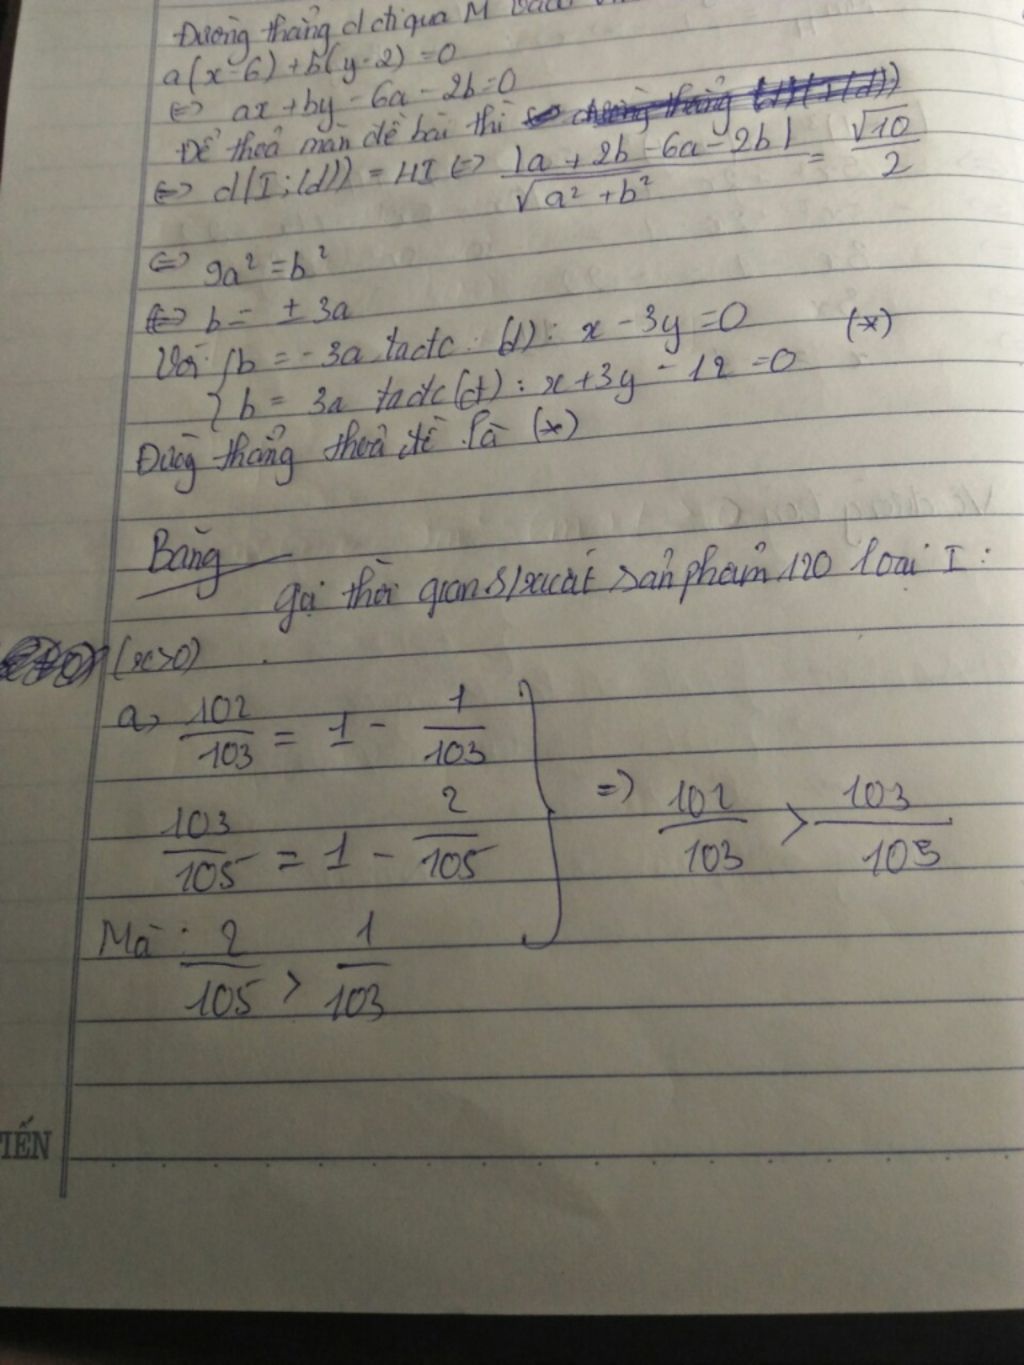 Đường thẳng d đi qua M
a(x-6)+b(y-2)=0
⇔ ax+by-6a-2b=0
Để thoả mãn đề bài thì
⇔ d(I;(d)) = HI ⇔ |a+2b-6a-2b| / √(a²+b²) = √10 / 2
⇔ 9a² = b²
⇔ b = ± 3a
Với { b = -3a tađtc (d): x - 3y = 0 (*)
b = 3a tađtc (d): x + 3y - 12 = 0
Đường thẳng thoả đề là (*)
Bằng
gọi thời gian s/xuất sản phẩm 120 loại I:
(x>0)
a, 102/103 = 1 - 1/103
103/105 = 1 - 2/105
⇒ 102/103 > 103/105
Mà: 2/105 > 1/103
TIẾN